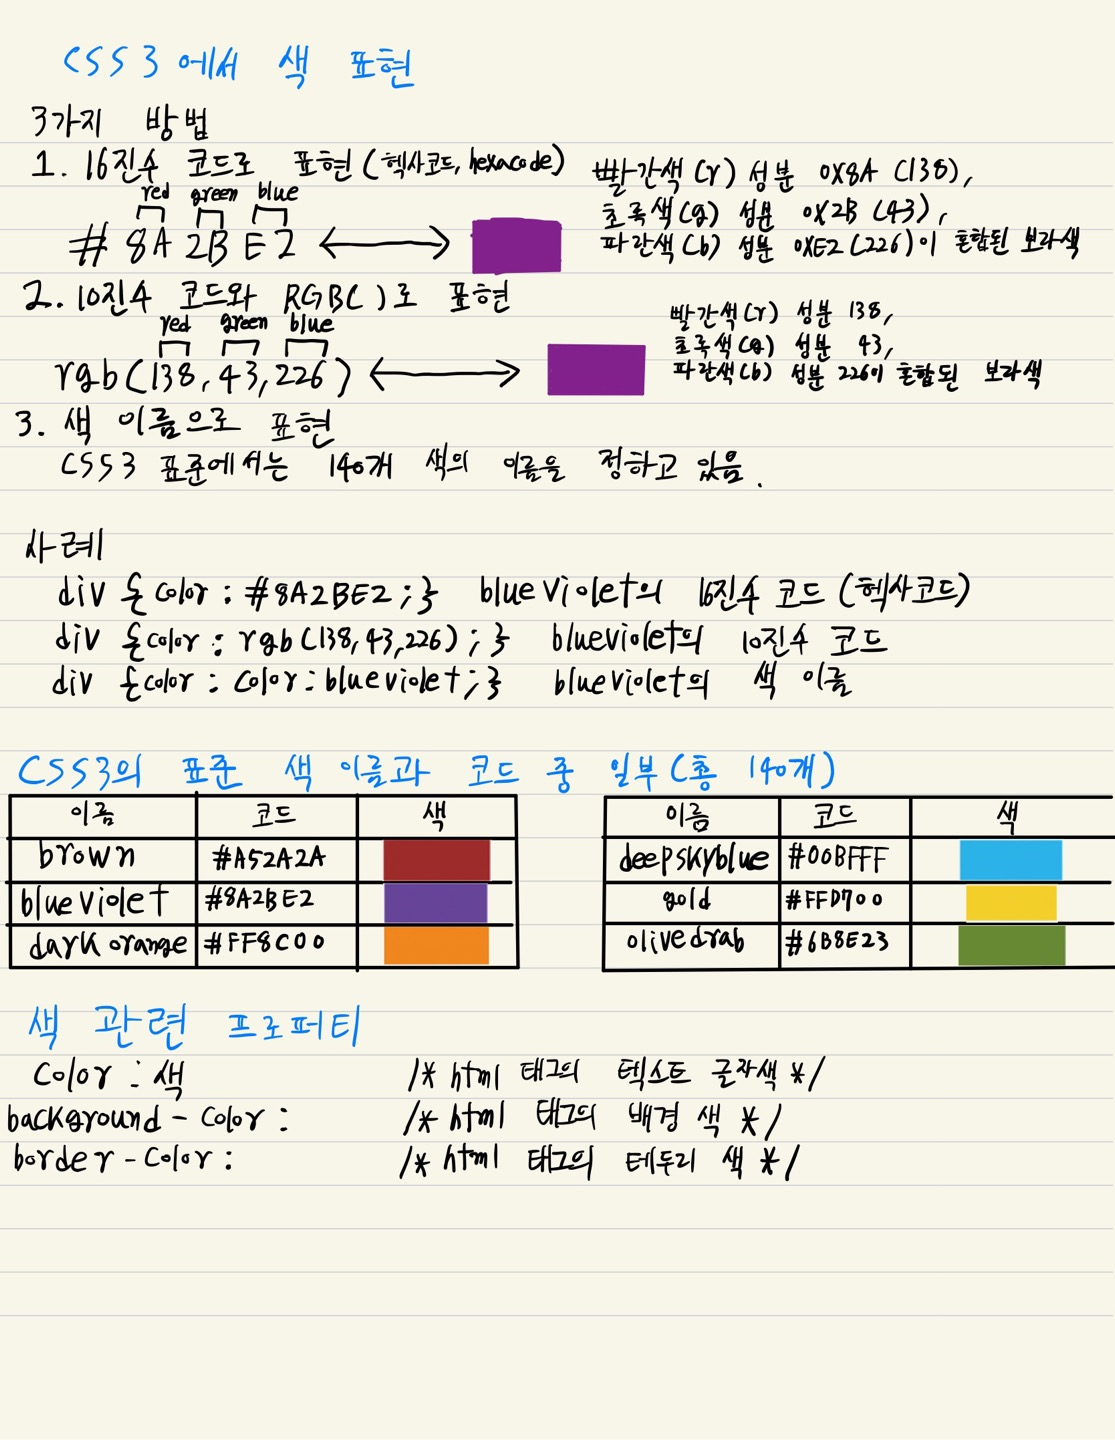 CSS3에서 색 표현
3가지 방법
1. 16진수 코드로 표현(헥사코드, hexacode)
red green blue
# 8A 2B E2
빨간색(r) 성분 0X8A (138),
초록색(g) 성분 0X2B (43),
파란색(b) 성분 0XE2(226)이 혼합된 보라색
2. 10진수 코드와 RGB( )로 표현
red green blue
rgb(138, 43, 226)
빨간색(r) 성분 138,
초록색(g) 성분 43,
파란색(b) 성분 226이 혼합된 보라색
3. 색 이름으로 표현
CSS3 표준에서는 140개 색의 이름을 정하고 있음.
사례
div {color : #8A2BE2 ; } blueviolet의 16진수 코드 (헥사코드)
div {color : rgb(138,43,226) ; } blueviolet의 10진수 코드
div {color : color : blueviolet ; } blueviolet의 색 이름
CSS3의 표준 색 이름과 코드 중 일부(총 140개)
이름 코드 색
brown #A52A2A
blueviolet #8A2BE2
darkorange #FF8C00
이름 코드 색
deepskyblue #00BFFF
gold #FFD700
olivedrab #6B8E23
색 관련 프로퍼티
color : 색 /* html 태그의 텍스트 글자색 */
background-color : /* html 태그의 배경 색 */
border-color : /* html 태그의 테두리 색 */